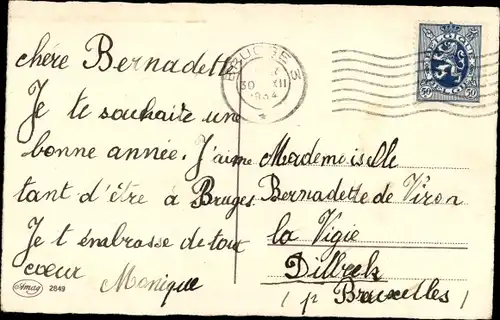 chére Bernadette
Je te souhaite une
bonne année. J'aime
tant d'être à Bruges
Je t'embrasse de tout
cœur Monique
Amag 2849
BRUGGE 3
30 XII
1934
BELGIQUE
50 50
BELGIE
Mademoiselle
Bernadette de Viron
la Vigie
Dilbeek
(p Bruxelles)